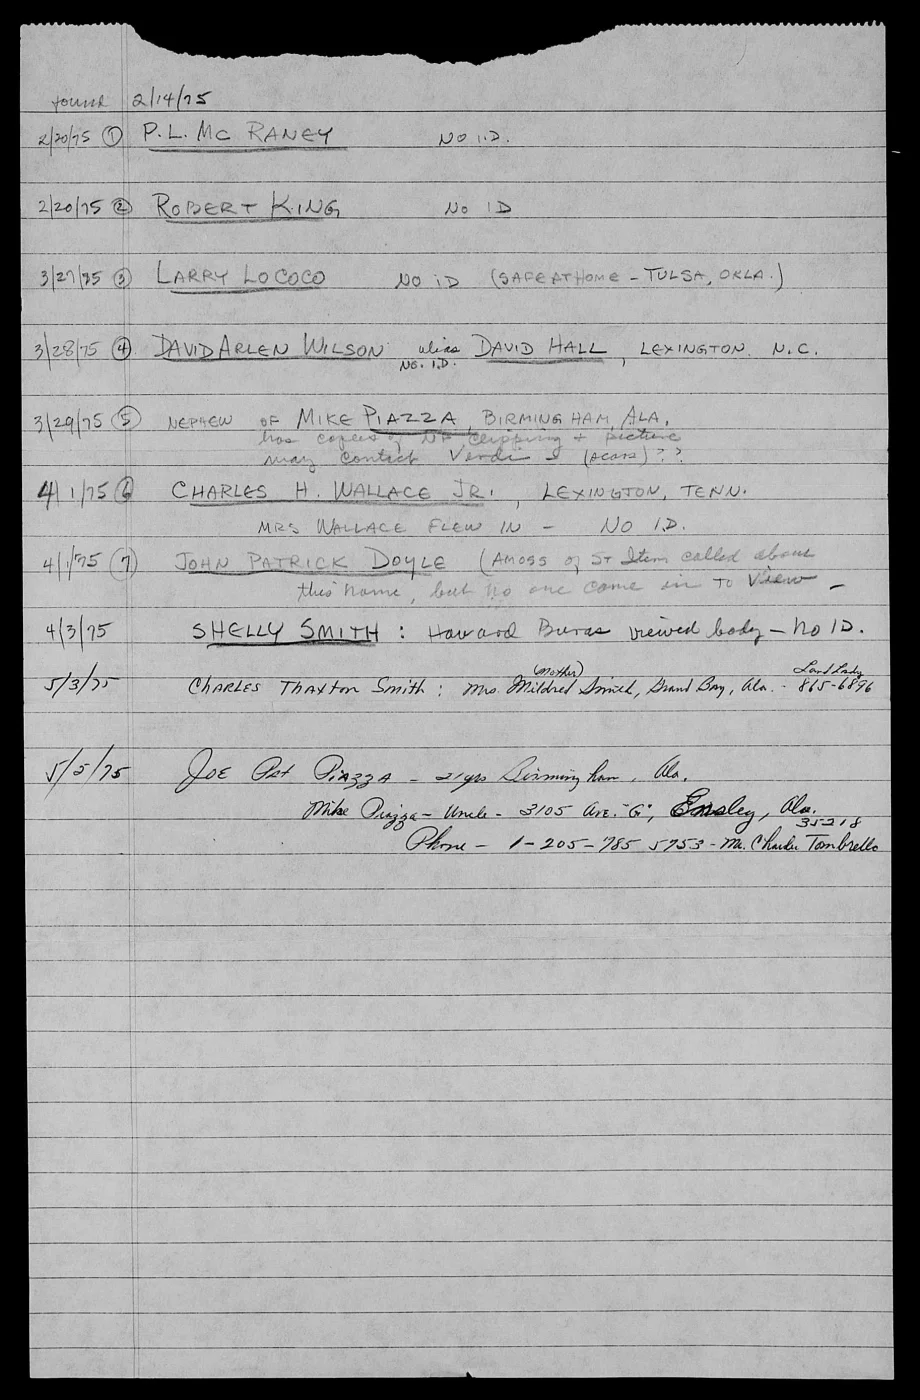 found 2/14/75
2/20/75 ① P.L. MC RANEY NO I.D.
2/20/75 ② ROBERT KING NO ID
3/27/75 ③ LARRY LOCOCO NO ID (SAFE AT HOME - TULSA, OKLA.)
3/28/75 ④ DAVID ARLEN WILSON alias DAVID HALL, LEXINGTON N.C.
NO. I.D.
3/29/75 ⑤ NEPHEW OF MIKE PIAZZA, BIRMINGHAM, ALA.
has copies of NP clipping + picture
may contact Verdi (scars)??
4/1/75 ⑥ CHARLES H. WALLACE JR., LEXINGTON, TENN.
MRS WALLACE FLEW IN - NO I.D.
4/1/75 ⑦ JOHN PATRICK DOYLE (AMOSS of ST Item called about
this name, but no one came in to view -
4/3/75 SHELLY SMITH : Howard Buras viewed body - No ID.
(Mother) Land Lady
5/3/75 CHARLES Thaxton Smith : Mrs. Mildred Smith, Grand Bay, Ala. - 865-6896
5/5/75 JOE Pat PIAZZA - 21 yrs Birmingham, Ala.
Mike Piazza - Uncle - 3105 Ave. "G", Ensley, Ala.
35218
Phone - 1-205-785 5753 - Mr. Charles Tombrello